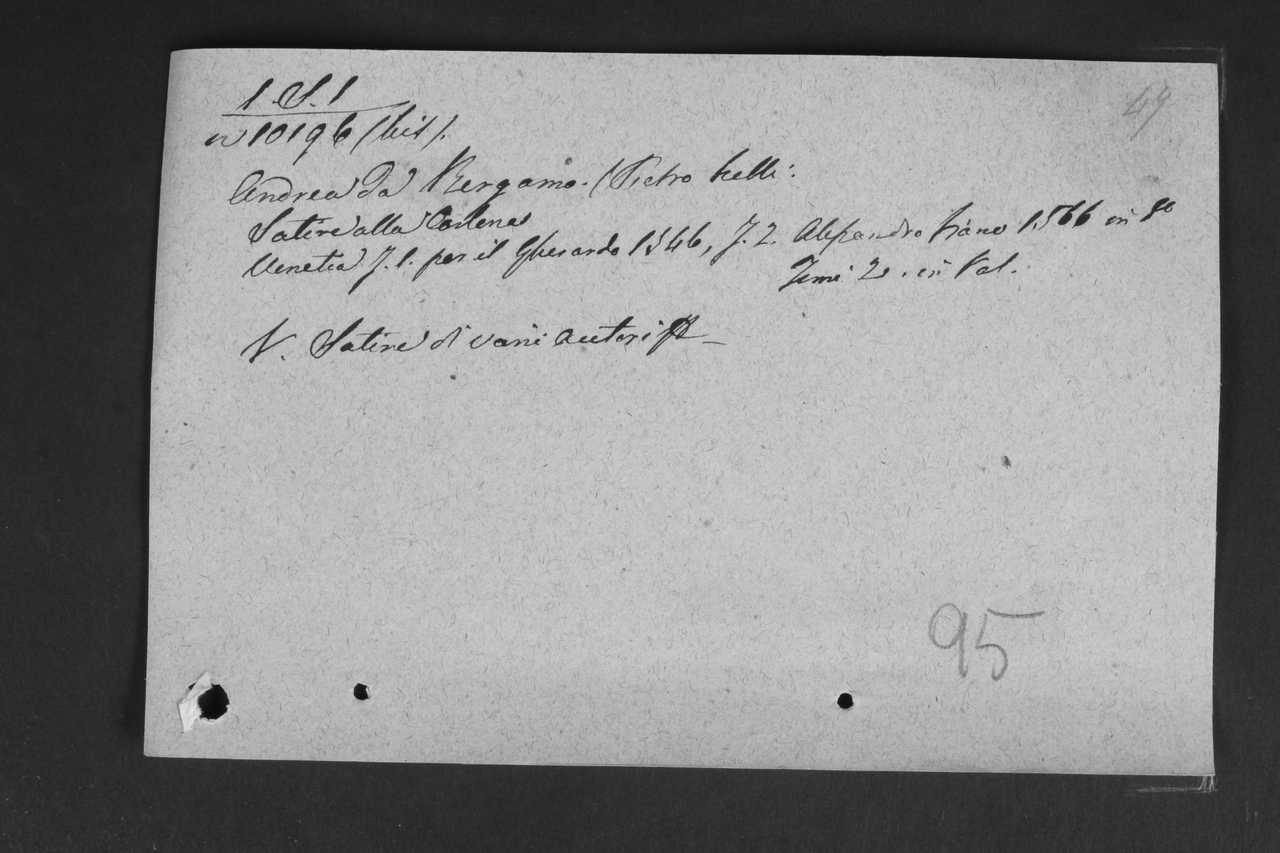 1.S.1
n 10196 (bis).
49
Andrea da Bergamo. (Pietro Nelli.
Satire alla Carlona
Venetia T. 1. per il Gherardo 1546, T. 2. Alessandro Viano 1566 in 8o
Tomi 2. in Vol.
V. Satire di varii autori
95